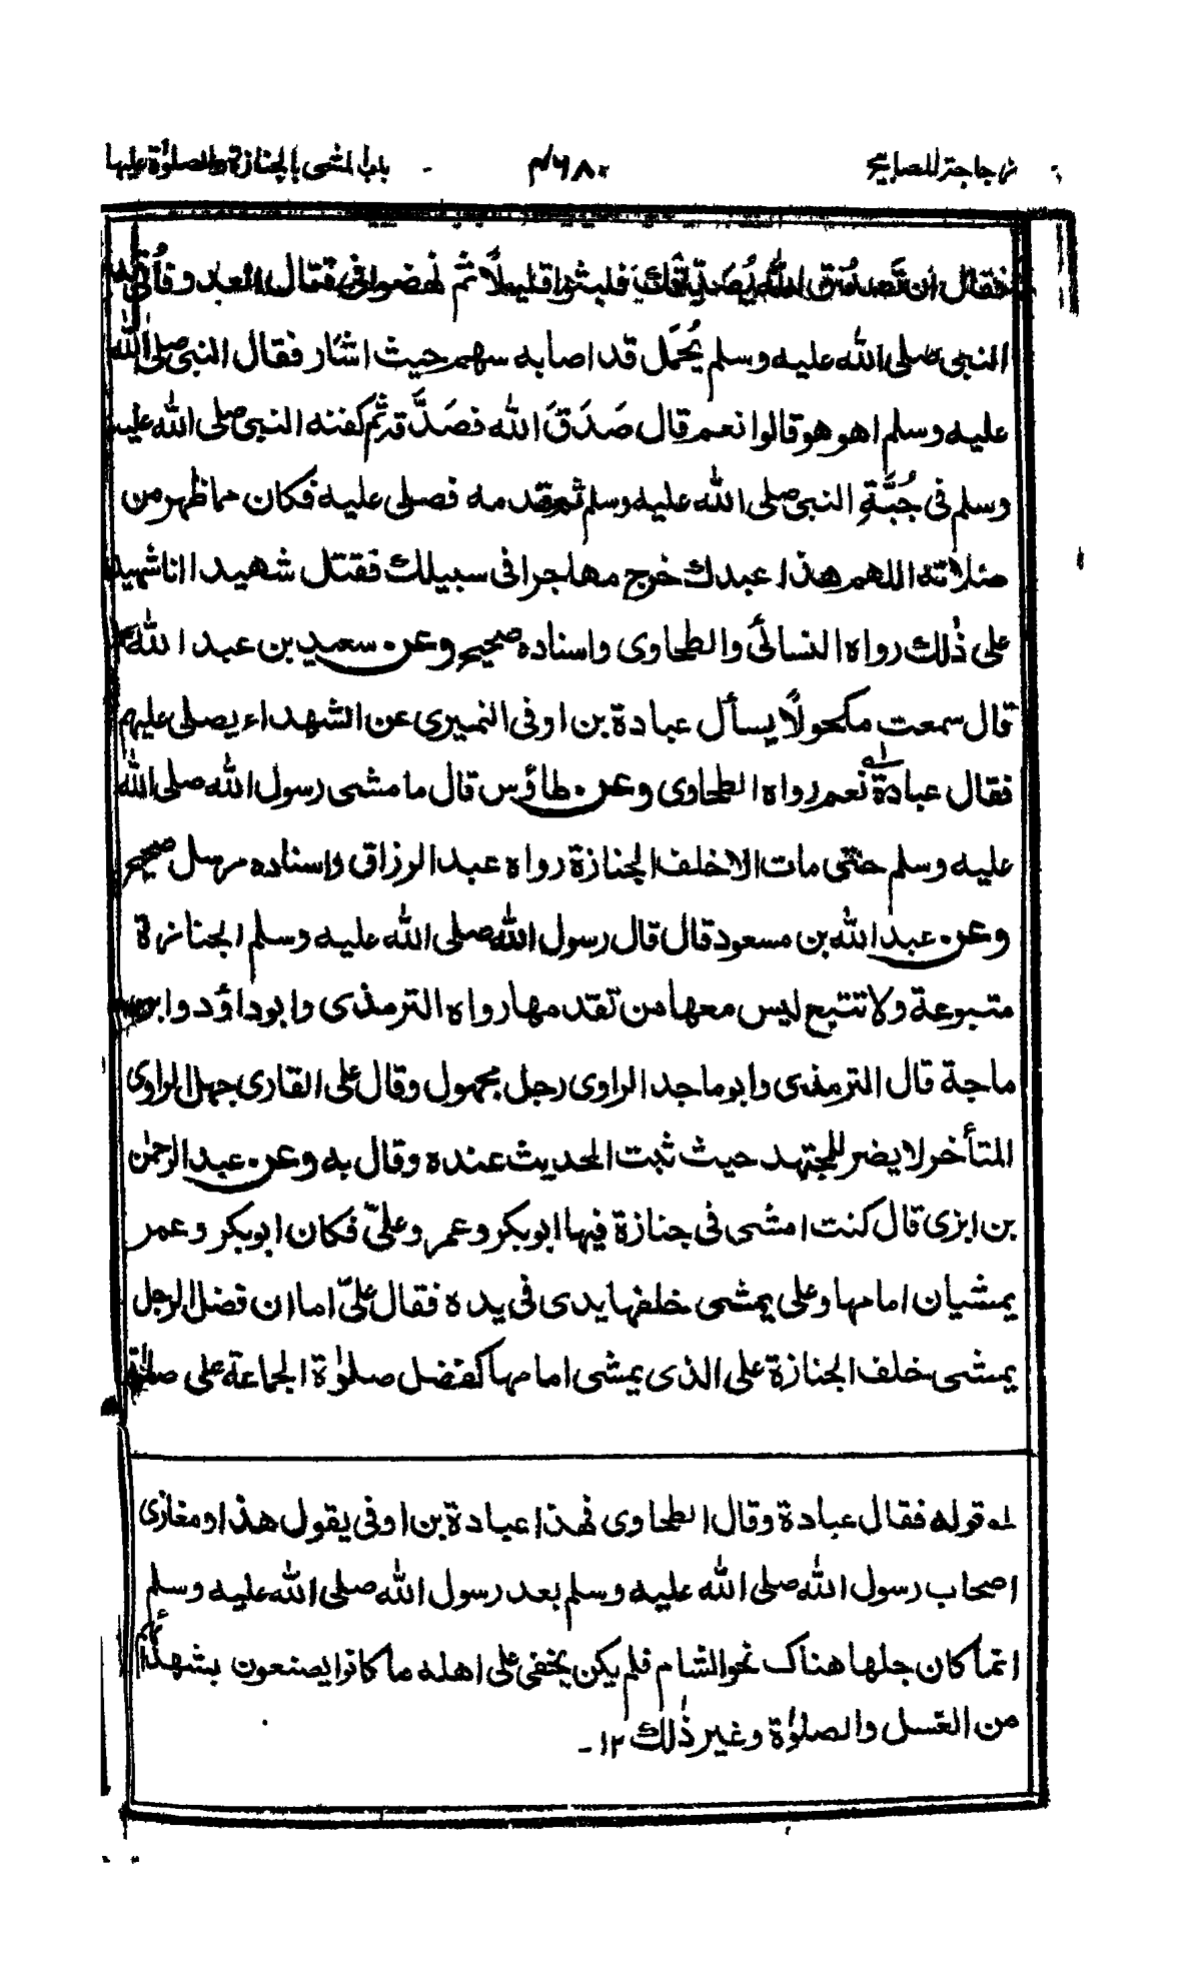 زجاجة المصابيح ۴۶۸ باب المشی بالجنازة والصلوٰة علیها
فقال ان تَصدُق اللهَ یُصَدِّقك فلبثوا قلیلًا ثم نهضوا فی قتال العدو فأُتی به
النبی صلی الله علیه وسلم یُحمَل قد اصابه سهم حیث اشار فقال النبی صلی الله
علیه وسلم اهو هو قالوا نعم قال صَدَقَ الله فصَدَّقه ثم کفنه النبی صلی الله علیه
وسلم فی جُبَّةِ النبی صلی الله علیه وسلم ثم قدمه فصلی علیه فکان مما ظهر من
صلاته اللهم هذا عبدك خرج مهاجرا فی سبیلك فقتل شهیدا انا شهید
علی ذٰلك رواه النسائی والطحاوی واسناده صحیح وعن سعید بن عبد الله
قال سمعت مکحولًا یسأل عبادة بن اوفی النمیری عن الشهداء یصلی علیهم
فقال عبادة لـه نعم رواه الطحاوی وعن طاؤس قال ما مشی رسول الله صلی الله
علیه وسلم حتی مات الا خلف الجنازة رواه عبد الرزاق واسناده مرسل صحیح
وعن عبد الله بن مسعود قال قال رسول الله صلی الله علیه وسلم الجنازة
متبوعة ولا تتبع لیس معها من تقدمها رواه الترمذی وابوداؤد وابن
ماجة قال الترمذی وابو ماجد الراوی رجل مجهول وقال علی القاری جهل الراوی
المتأخر لا یضر للمجتهد حیث ثبت الحدیث عنده وقال به وعن عبد الرحمٰن
بن ابزی قال کنت امشی فی جنازة فیها ابوبکر وعمر وعلیّ فکان ابوبکر وعمر
یمشیان امامها وعلی یمشی خلفها یدی فی یده فقال علیّ اما ان فضل الرجل
یمشی خلف الجنازة علی الذی یمشی امامها کفضل صلوٰة الجماعة علی صلوٰة
لـه قوله فقال عبادة وقال الطحاوی فهذا عبادة بن اوفی یقول هذا ومغازی
اصحاب رسول الله صلی الله علیه وسلم بعد رسول الله صلی الله علیه وسلم
انما کان جلها هناك نحو الشام فلم یکن یخفی علی اهله ما کانوا یصنعون بشهدائهم
من الغسل والصلوٰة وغیر ذٰلك ۱۲-